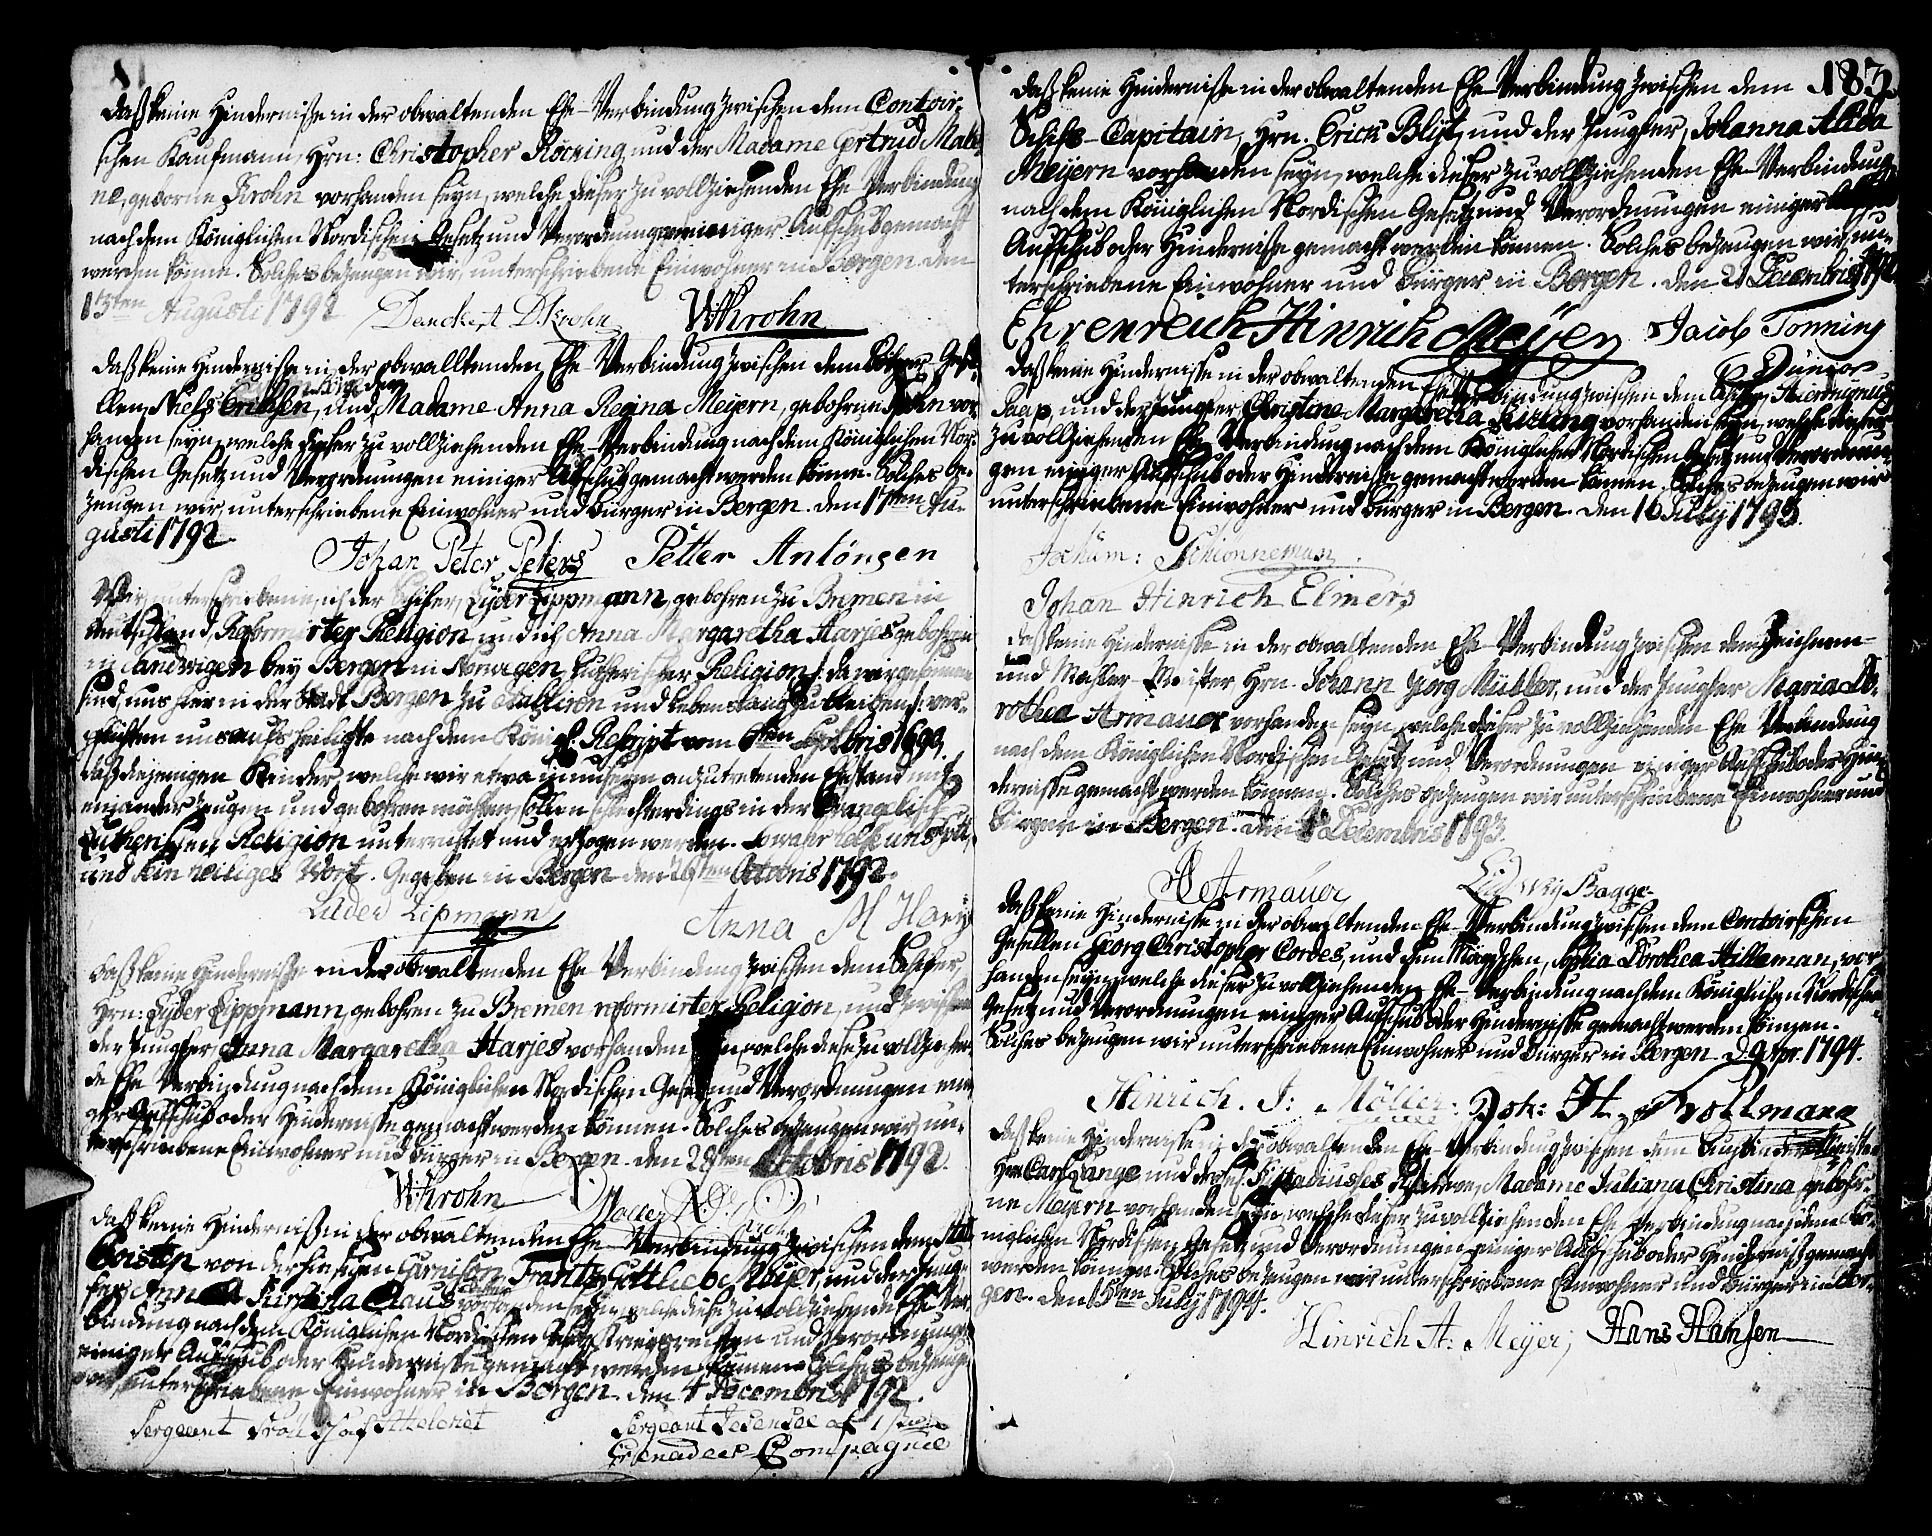 Daß keine Hinderniße in der obwaltenden Ehe-Verbindung zwischen dem Contoir-
schen Kaufmann, Hrn: Christopher Röcking und der Madame Gertrud Male-
ne, geborne Krohn vorhanden seyn, welche dieser zu vollziehenden Ehe Verbindung
nach dem Königlichen Nordischen Gesetz und Verordnungen einiger Aufschub gemacht
werden könne. Solches bezeugen wir, unterschriebene Einwohner in Bergen den
13ten Augusti 1792 Danckert D. Krohn WKrohn
Daß keine Hinderniße in der obwalltenden Ehe-Verbindung zwischen dem Gesel-
len, Niels Erichsen, und Madame Anna Regina Meyern, gebohrne vor-
handen seyn, welche dieser zu vollziehenden Ehe-Verbindung nach dem Königlichen Nor-
dischen Gesetz und Verordnungen einiger Aufschub gemacht werden könne. Solches be-
zeugen wir, unterschriebene Einwohner und Bürger in Bergen. den 17ten Au-
gusti 1792.
Johan Peter Peters Petter Antönsen
Wir, unterschriebene, ich der Schifer, Lyder Lippmann, gebohren zu Bremen in
Deutschland, Reformirter Religion und ich Anna Margaretha Harjes gebohren
in Sandwigen bey Bergen in Norwegen, Lutherischer Religion /: da wir gesonnen
sind, uns hier in der Stadt Bergen zu etabliren und lebenslang zu bleiben :/ ver-
pflichten uns aufs heiligste nach dem Königl. Rescript vom
daß diejenigen Kinder, welche wir etwa in unserm anzutretenden Ehestand mit
einander zeugen und gebohren möchten, sollen schlechterdings in der Evangelisch
Lutherischen Religion unterrichtet und erzogen werden. So wahr helfe uns Gott,
und sein heiliges Wort. Gegeben in Bergen den 26sten Octobris 1792.
Lüder Lipmann Anna M Harjs
Daß keine Hinderniße in der obwaltenden Ehe Verbindung zwischen dem Schifer,
Hrn: Lyder Lippmann, gebohren zu Bremen reformirter Religion, und zwischen
der Jungfer Anna Margaretha Harjes vorhanden seyn, welche diese zu vollziehen-
de Ehe Verbindung nach dem Königlichen Nordischen Gesetz und Verordnungen eini-
ger Aufschub oder Hinderniße gemacht werden können. Solches bezeugen wir, un-
terschriebene Einwohner und Bürger in Bergen. den 28sten Octobris 1792.
WKrohn
Daß keine Hinderniß in der obwaltenden Ehe-Verbindung zwischen dem
von der hiesigen Garnison, Frantz Gottlieb Meyer, und der Jung-
fer Anna Claus vorhanden seyn, welche diese zu vollziehende Ehe Ver-
bindung nach dem Königlichen Nordischen Gesetz und Verordnungen
einiger Aufschub oder Hinderniße gemacht werden können. Solches bezeugen
wir unterschriebene Einwohner in Bergen. den 4 Decembris 1792.
Sergeant
Sergeant
Grenadeer-Compagnie
183.
Daß keine Hinderniße in der obwaltenden Ehe-Verbindung zwischen dem
Schifs-Capitain, Hrn. Erick Blijt, und der Jungfer, Johanna Alida
Meyern vorhanden seyn, welche dieser zu vollziehenden Ehe-Verbindung
nach dem Königlichen Nordischen Gesetz und Verordnungen einiger
Aufschub oder Hinderniße gemacht werden können. Solches bezeugen wir, un-
terschriebene Einwohner und Bürger in Bergen. den 21 Decembris 1792
Ehrenreich Hinrich Meÿer Jacob Tonning
Junior
Daß keine Hinderniße in der obwaltenden Ehe Verbindung zwischen dem
Paap, und der Jungfer Christine Margaretha vorhanden seyn, welche dieser
zu vollziehenden Ehe Verbindung nach dem Königlichen Nordischen Gesetz und Verordnun-
gen einiger Aufschub oder Hinderniße gemacht werden können. Solches bezeugen wir
unterschriebene Einwohner und Bürger in Bergen. den 16 July 1793.
Jochim: Schionneman.
Johan Hinrich Elmers
Daß keine Hinderniße in der obwaltenden Ehe-Verbindung zwischen dem Zeichnen-
und Mahler-Meister Hrn. Johann Georg Müller, und der Jungfer Maria Do-
rothea Armauer vorhanden seyn, welche dieser zu vollziehenden Ehe Verbindung
nach dem Königlichen Nordischen Gesetz und Verordnungen einiger Aufschub oder Hin-
derniße gemacht werden können. Solches bezeugen wir unterschriebene Einwohner und
Bürger in Bergen. den Decembris 1793.
Armauer Ludwig Bagge
Daß keine Hinderniße in der obwaltenden Ehe-Verbindung zwischen dem Contoirschen
Gesellen Georg Christopher Cordes, und dem Mägdchen, Sophia Dorothea Hilleman, vor-
handen seyn, welche dieser zu vollziehenden Ehe-Verbindung nach dem Königlichen Nordischen
Gesetz und Verordnungen einiger Aufschub oder Hinderniße gemacht werden können.
Solches bezeugen wir unterschriebene Einwohner und Bürger in Bergen. d 9 Apr. 1794.
Hinrich. J: Möller. Joh: H. Trollmann
Daß keine Hinderniße in der obwaltenden Ehe-Verbindung zwischen dem
Hrn Carl Lange und Wittwe, Madame Juliana Christina, gebohr-
ne Meyern vorhanden seyn, welche dieser zu vollziehenden Ehe Verbindung nach dem Kö-
niglichen Nordischen Gesetz und Verordnungen einiger Aufschub oder Hinderniß gemacht
werden können. Solches bezeugen wir unterschriebene Einwohner und Bürger in Ber-
gen. den 15ten July 1794.
Hinrich A: Meyer; Hans Hansen